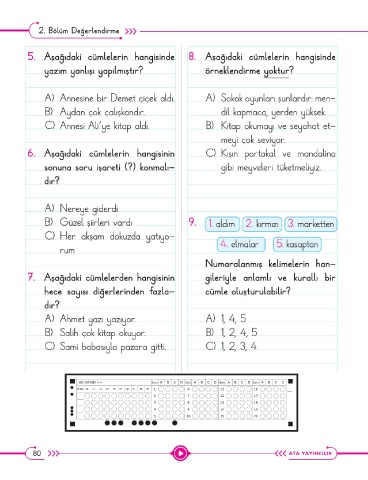 2. Bölüm Değerlendirme
5. Aşağıdaki cümlelerin hangisinde
yazım yanlışı yapılmıştır?
A) Annesine bir Demet çiçek aldı.
B) Aydan çok çalışkandır.
C) Annesi Ali'ye kitap aldı.
6. Aşağıdaki cümlelerin hangisinin
sonuna soru işareti (?) konmalı-
dır?
A) Nereye giderdi
B) Güzel şiirleri vardı
C) Her akşam dokuzda yatıyo-
rum
7. Aşağıdaki cümlelerden hangisinin
hece sayısı diğerlerinden fazla-
dır?
A) Ahmet yazı yazıyor.
B) Salih çok kitap okuyor.
C) Sami babasıyla pazara gitti.
8. Aşağıdaki cümlelerin hangisinde
örneklendirme yoktur?
A) Sokak oyunları şunlardır: men-
dil kapmaca, yerden yüksek.
B) Kitap okumayı ve seyahat et-
meyi çok seviyor.
C) Kışın portakal ve mandalina
gibi meyveleri tüketmeliyiz.
9. 1. aldım 2. kırmızı 3. marketten
4. elmalar 5. kasaptan
Numaralanmış kelimelerin han-
gileriyle anlamlı ve kurallı bir
cümle oluşturulabilir?
A) 1, 4, 5
B) 1, 2, 4, 5
C) 1, 2, 3, 4
80
ATA YAYINCILIK